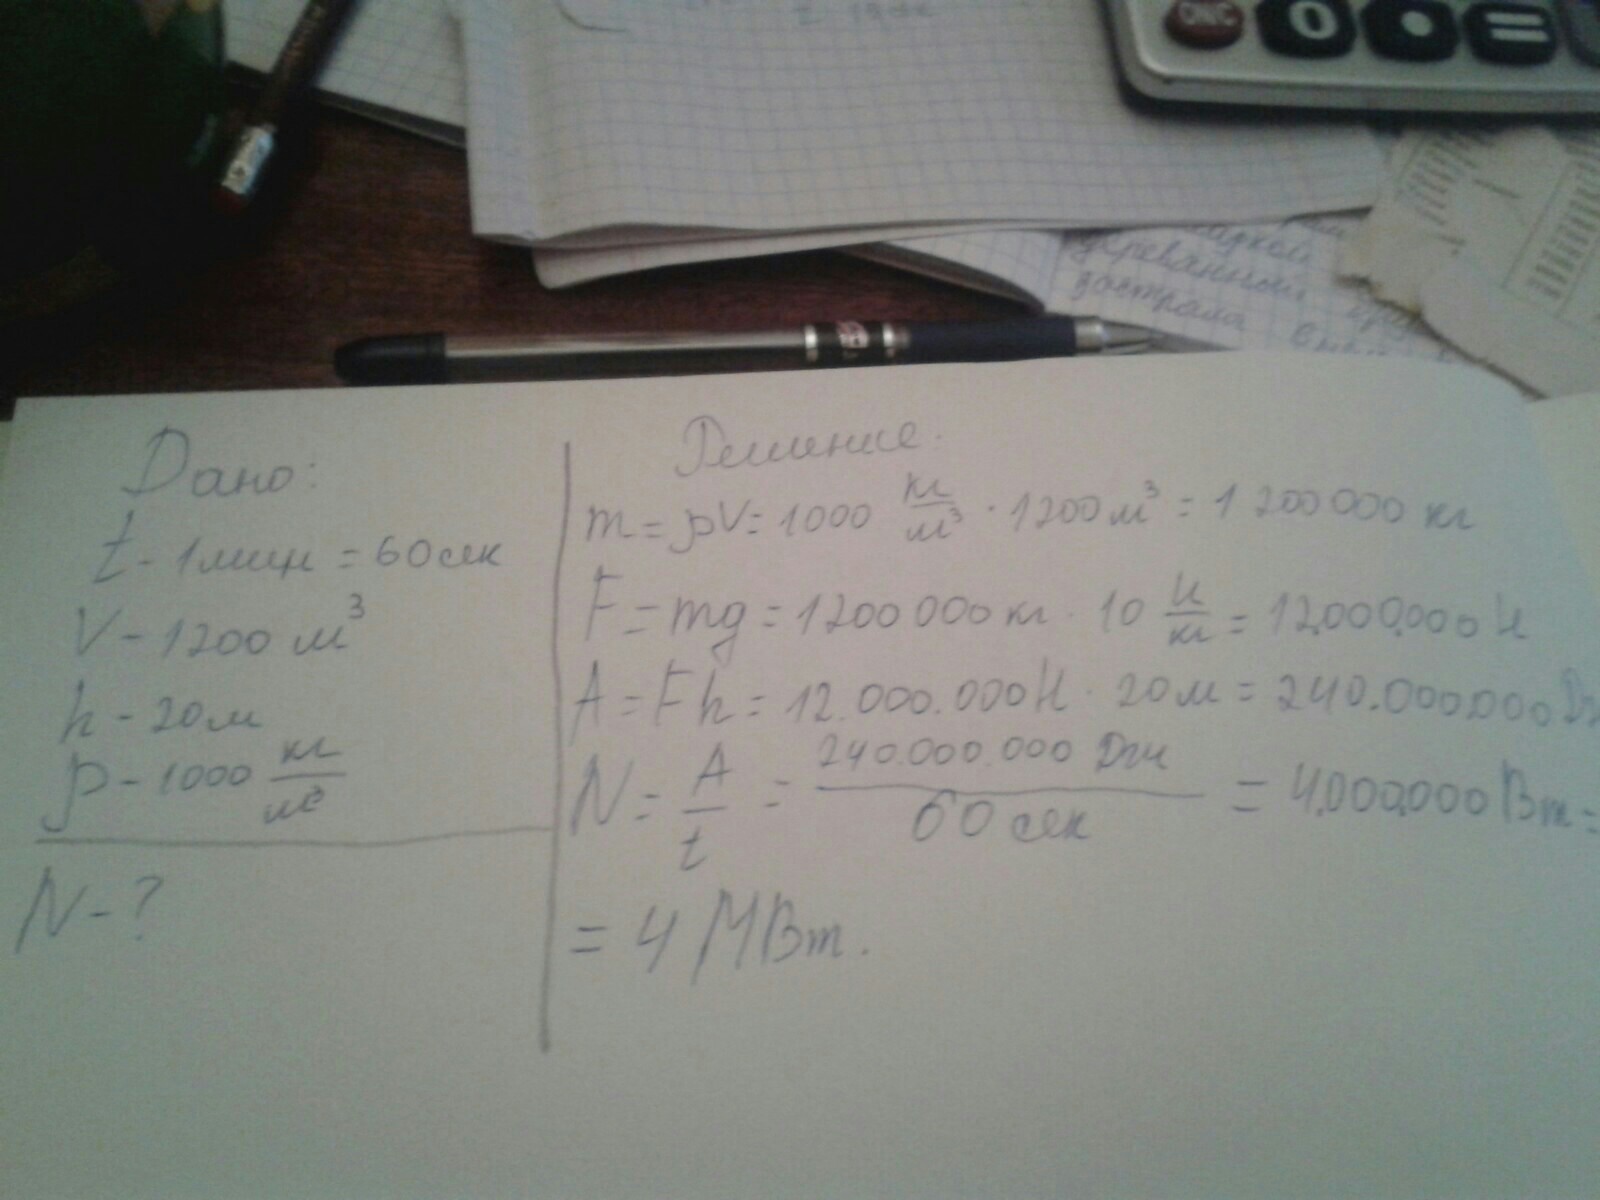 ONC 0 • =
деревянной
застряла
Дано:
t - 1мин = 60сек
V - 1200 м³
h - 20м
ρ - 1000 кг/м³
N - ?
Решение.
m = ρV = 1000 кг/м³ · 1200м³ = 1 200 000 кг
F = mg = 1200 000 кг · 10 Н/кг = 12.000.000 Н
A = Fh = 12.000.000Н · 20м = 240.000.000 Дж
N = A/t = 240.000.000 Дж/60 сек = 4.000.000 Вт =
= 4 МВт.